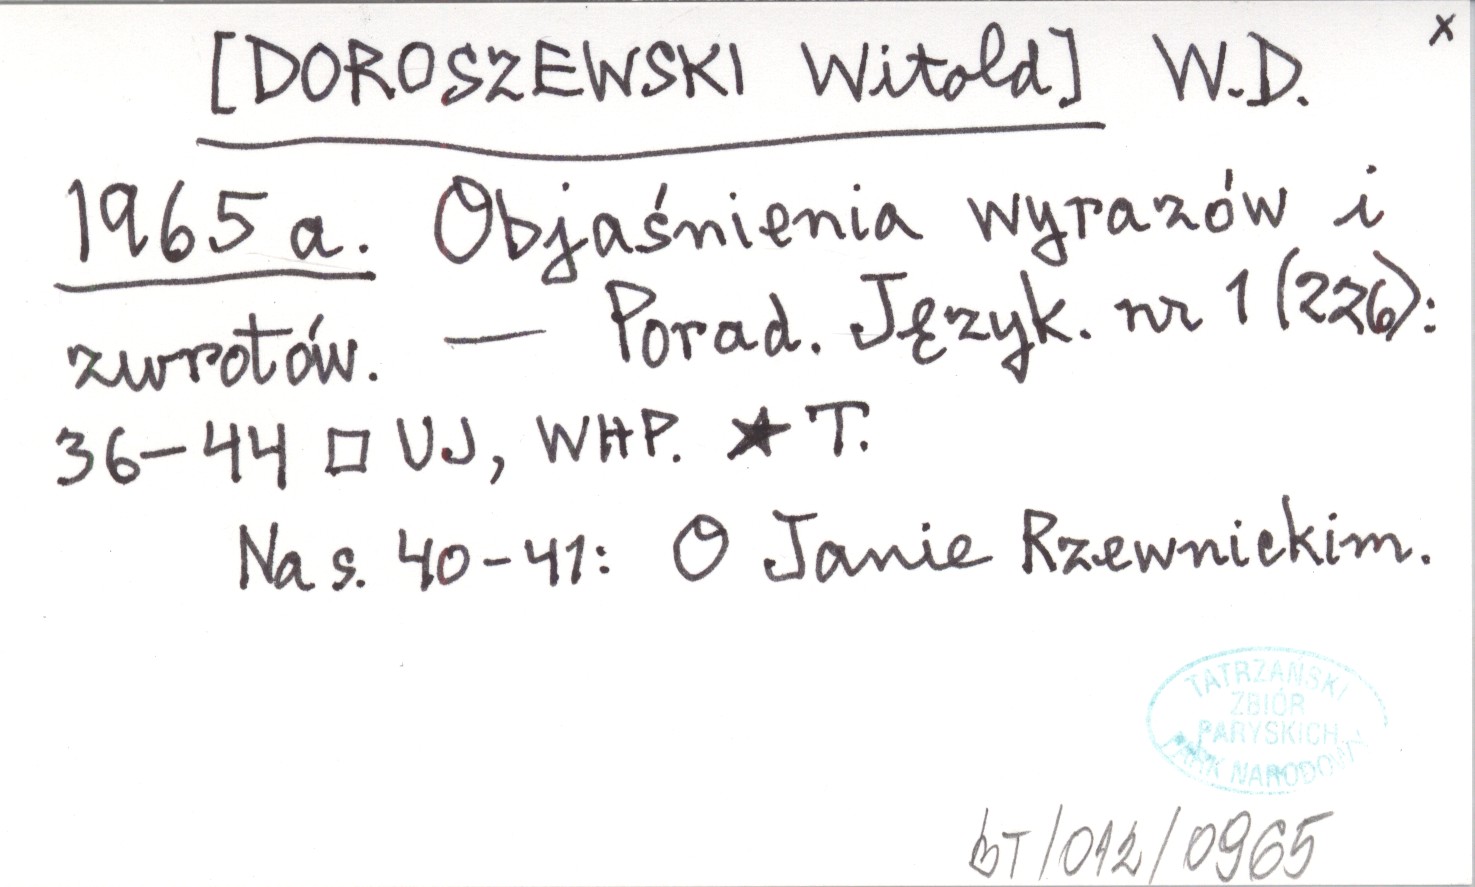 x
[DOROSZEWSKI Witold] W.D.
1965 a. Objaśnienia wyrazów i
zwrotów. — Porad. Język. nr 1 (226):
36–44 □ UJ, WHP. ★ T.
Na s. 40–41: O Janie Rzewnickim.
TATRZAŃSKI
ZBIÓR
PARYSKICH
PARK NARODOWY
BT/012/0965